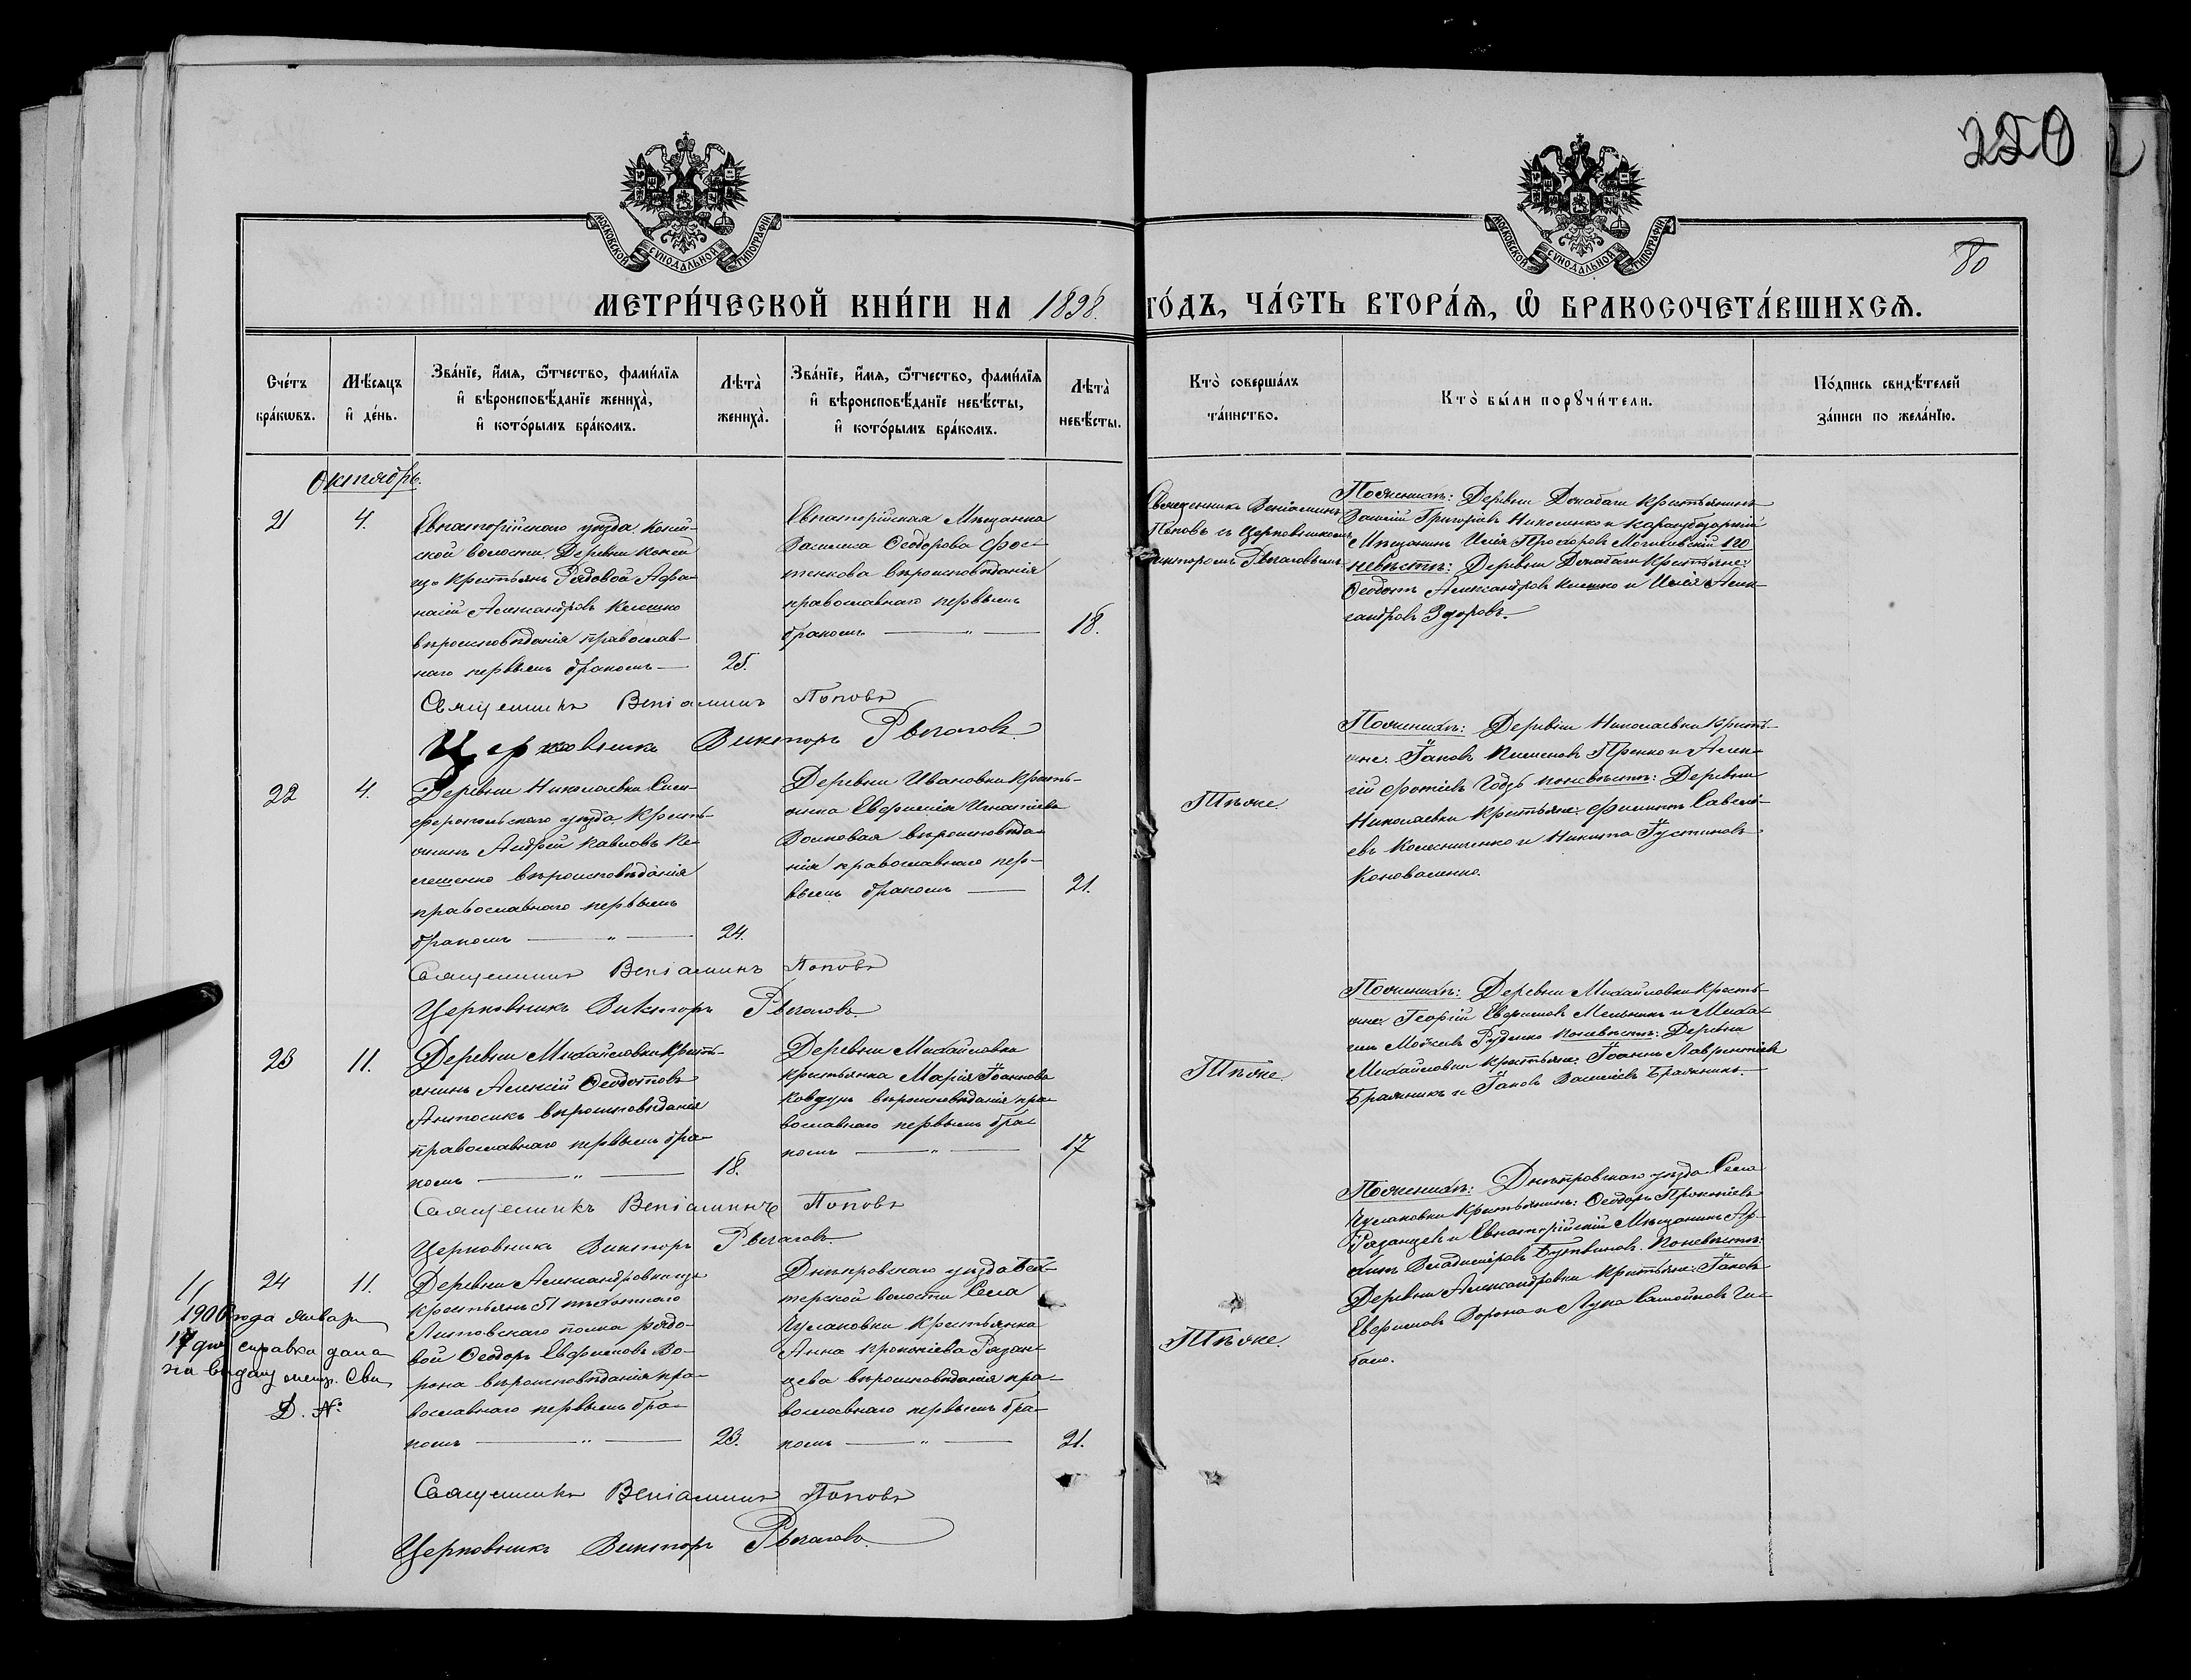 220
80
МОСКОВСКОЙ СѴНОДАЛЬНОЙ ТИПОГРАФІИ
МОСКОВСКОЙ СѴНОДАЛЬНОЙ ТИПОГРАФІИ
МЕТРИ́ЧЕСКОЙ КНИ́ГИ НА 1898. ГО́ДЪ, ЧА́СТЬ ВТОРА́Я, Ѡ҆ БРАКОСОЧЕТА́ВШИХСЯ.
Сче́тъ бра́кѡвъ.
Мѣ́сяцъ и҆ де́нь.
Зва́нїе, и҆́мя, ѻ҆́тчество, фами́лїя
и҆ вѣроисповѣ́данїе жениха̀,
и҆ кото́рымъ бра́комъ.
Лѣта̀ жениха̀.
Зва́нїе, и҆́мя, ѻ҆́тчество, фами́лїя
и҆ вѣроисповѣ́данїе невѣ́сты,
и҆ кото́рымъ бра́комъ.
Лѣта̀ невѣ́сты.
Кто̀ соверша́лъ та́инство.
Кто̀ бы́ли порꙋчи́тели.
По́дпись свидѣ́телей за́писи по жела́нїю.
Октябрь.
21
4.
Евпаторійскаго уѣзда
ской волости Деревни
изъ крестьянъ Рядовой Афа-
насій Александровъ Клешко
вѣроисповѣданія православ-
наго первымъ бракомъ
25.
Евпаторійская Мѣщанка
Василиса Ѳеодорова
вѣроисповѣданія
православнаго первымъ
бракомъ
18.
Священникъ Веніаминъ
Поповъ и Церковникомъ
Викторомъ Рычаговымъ
По женихѣ: Деревни Крестьянинъ
Василій Григорьевъ и Карасубазарскій
Мѣщанинъ Илія Прохоровъ Могилевскій по
невѣстѣ: Деревни Крестьяне:
Ѳеодотъ Александровъ Клешко и Илія Алек-
сандровъ Здоровъ.
Священникъ Веніаминъ Поповъ
Церковникъ Викторъ Рычаговъ
22
4.
Деревни Николаевки Сим-
феропольскаго уѣзда Кресть-
янинъ Андрей Павловъ
вѣроисповѣданія
православнаго первымъ
бракомъ
24.
Деревни Ивановки Кресть-
янка Евфимія Игнатіева
Волковая вѣроисповѣда-
нія православнаго пер-
вымъ бракомъ
21.
Тѣже.
По женихѣ: Деревни Николаевки Кресть-
яне: Іаковъ и Алек-
сій Фотіевъ по невѣстѣ: Деревни
Николаевки Крестьяне: Филиппъ Савель-
евъ Колесниченко и Никита Іустиновъ
Коноваленко.
Священникъ Веніаминъ Поповъ
Церковникъ Викторъ Рычаговъ
23
11.
Деревни Михайловки Кресть-
янинъ Алексій Ѳеодотовъ
вѣроисповѣданія
православнаго первымъ бра-
комъ
18.
Деревни Михайловки
Крестьянка Марія Іоаннова
Ковдунъ вѣроисповѣданія пра-
вославнаго первымъ бра-
комъ
17
Тѣже.
По женихѣ: Деревни Михайловки Кресть-
яне: Георгій Евфимовъ Мельникъ и Миха-
илъ Моѵсеевъ Руденко по невѣстѣ: Деревни
Михайловки Крестьяне: Іоаннъ Лаврентіевъ
Бражникъ и Іаковъ Василіевъ Бражникъ.
Священникъ Веніаминъ Поповъ
Церковникъ Викторъ Рычаговъ
24
11.
Деревни Александровки изъ
крестьянъ 51 пѣхотнаго
Литовскаго полка рядо-
вой Ѳеодоръ Евфимовъ Во-
рона вѣроисповѣданія пра-
вославнаго первымъ бра-
комъ
23.
Днѣпровскаго уѣзда
волости Села
Чулаковки Крестьянка
Анна Прокопіева Рязан-
цева вѣроисповѣданія пра-
вославнаго первымъ бра-
комъ
21.
Тѣже.
По женихѣ: Днѣпровскаго уѣзда Села
Чулаковки Крестьянинъ: Ѳеодоръ Прокопіевъ
Рязанцевъ и Евпаторійскій Мѣщанинъ
Владиміровъ По невѣстѣ:
Деревни Александровки Крестьяне: Іаковъ
Евфимовъ Ворона и Лука Самойловъ
1906 года января
17 дня справка дана
на выдачу метр. Сви
Д. №
Священникъ Веніаминъ Поповъ
Церковникъ Викторъ Рычаговъ.